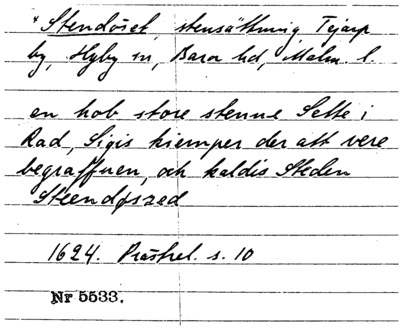 "Stendöset, stensättning Tejarp
by, Hyby sn, Bara hd, Malm. l.
en hob store stenne Sette i
Rad, Sigis kiemper der att vere
begraffuen, och kaldis Steden
Steendøszed
1624. Prästrel. s. 10
Nr 5533.